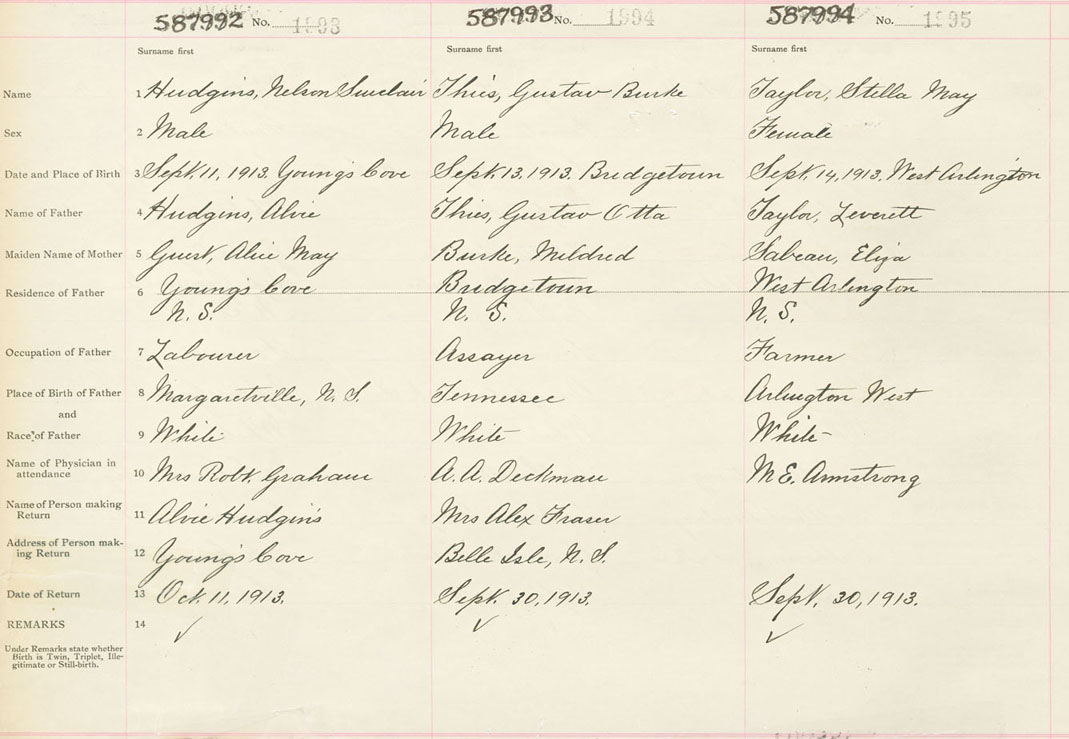 587992 No. 1893 587993 No. 1994 587994 No. 1895
Surname first Surname first Surname first
Name 1 Hudgins, Nelson Sinclair Thies, Gustav Burke Taylor, Stella May
Sex 2 Male Male Female
Date and Place of Birth 3 Sept. 11, 1913. Young's Cove Sept. 13. 1913. Bridgetown Sept. 14, 1913. West Arlington
Name of Father 4 Hudgins, Alvie Thies, Gustav Otta Taylor, Leverett
Maiden Name of Mother 5 Guest, Alice May Burke, Mildred Sabeau, Eliza
Residence of Father 6 Young's Cove Bridgetown West Arlington
N. S. N. S. N. S.
Occupation of Father 7 Labourer Assayer Farmer
Place of Birth of Father 8 Margaretville, N. S. Tennessee Arlington West
and
Race of Father 9 White White White
Name of Physician in
attendance 10 Mrs Robt. Graham A. A. Deckman M E. Armstrong
Name of Person making
Return 11 Alvie Hudgins Mrs Alex Fraser
Address of Person mak-
ing Return 12 Young's Cove Belle Isle, N. S.
Date of Return 13 Oct. 11, 1913. Sept. 30, 1913. Sept. 30, 1913.
REMARKS 14
Under Remarks state whether
Birth is Twin, Triplet, Ille-
gitimate or Still-birth.